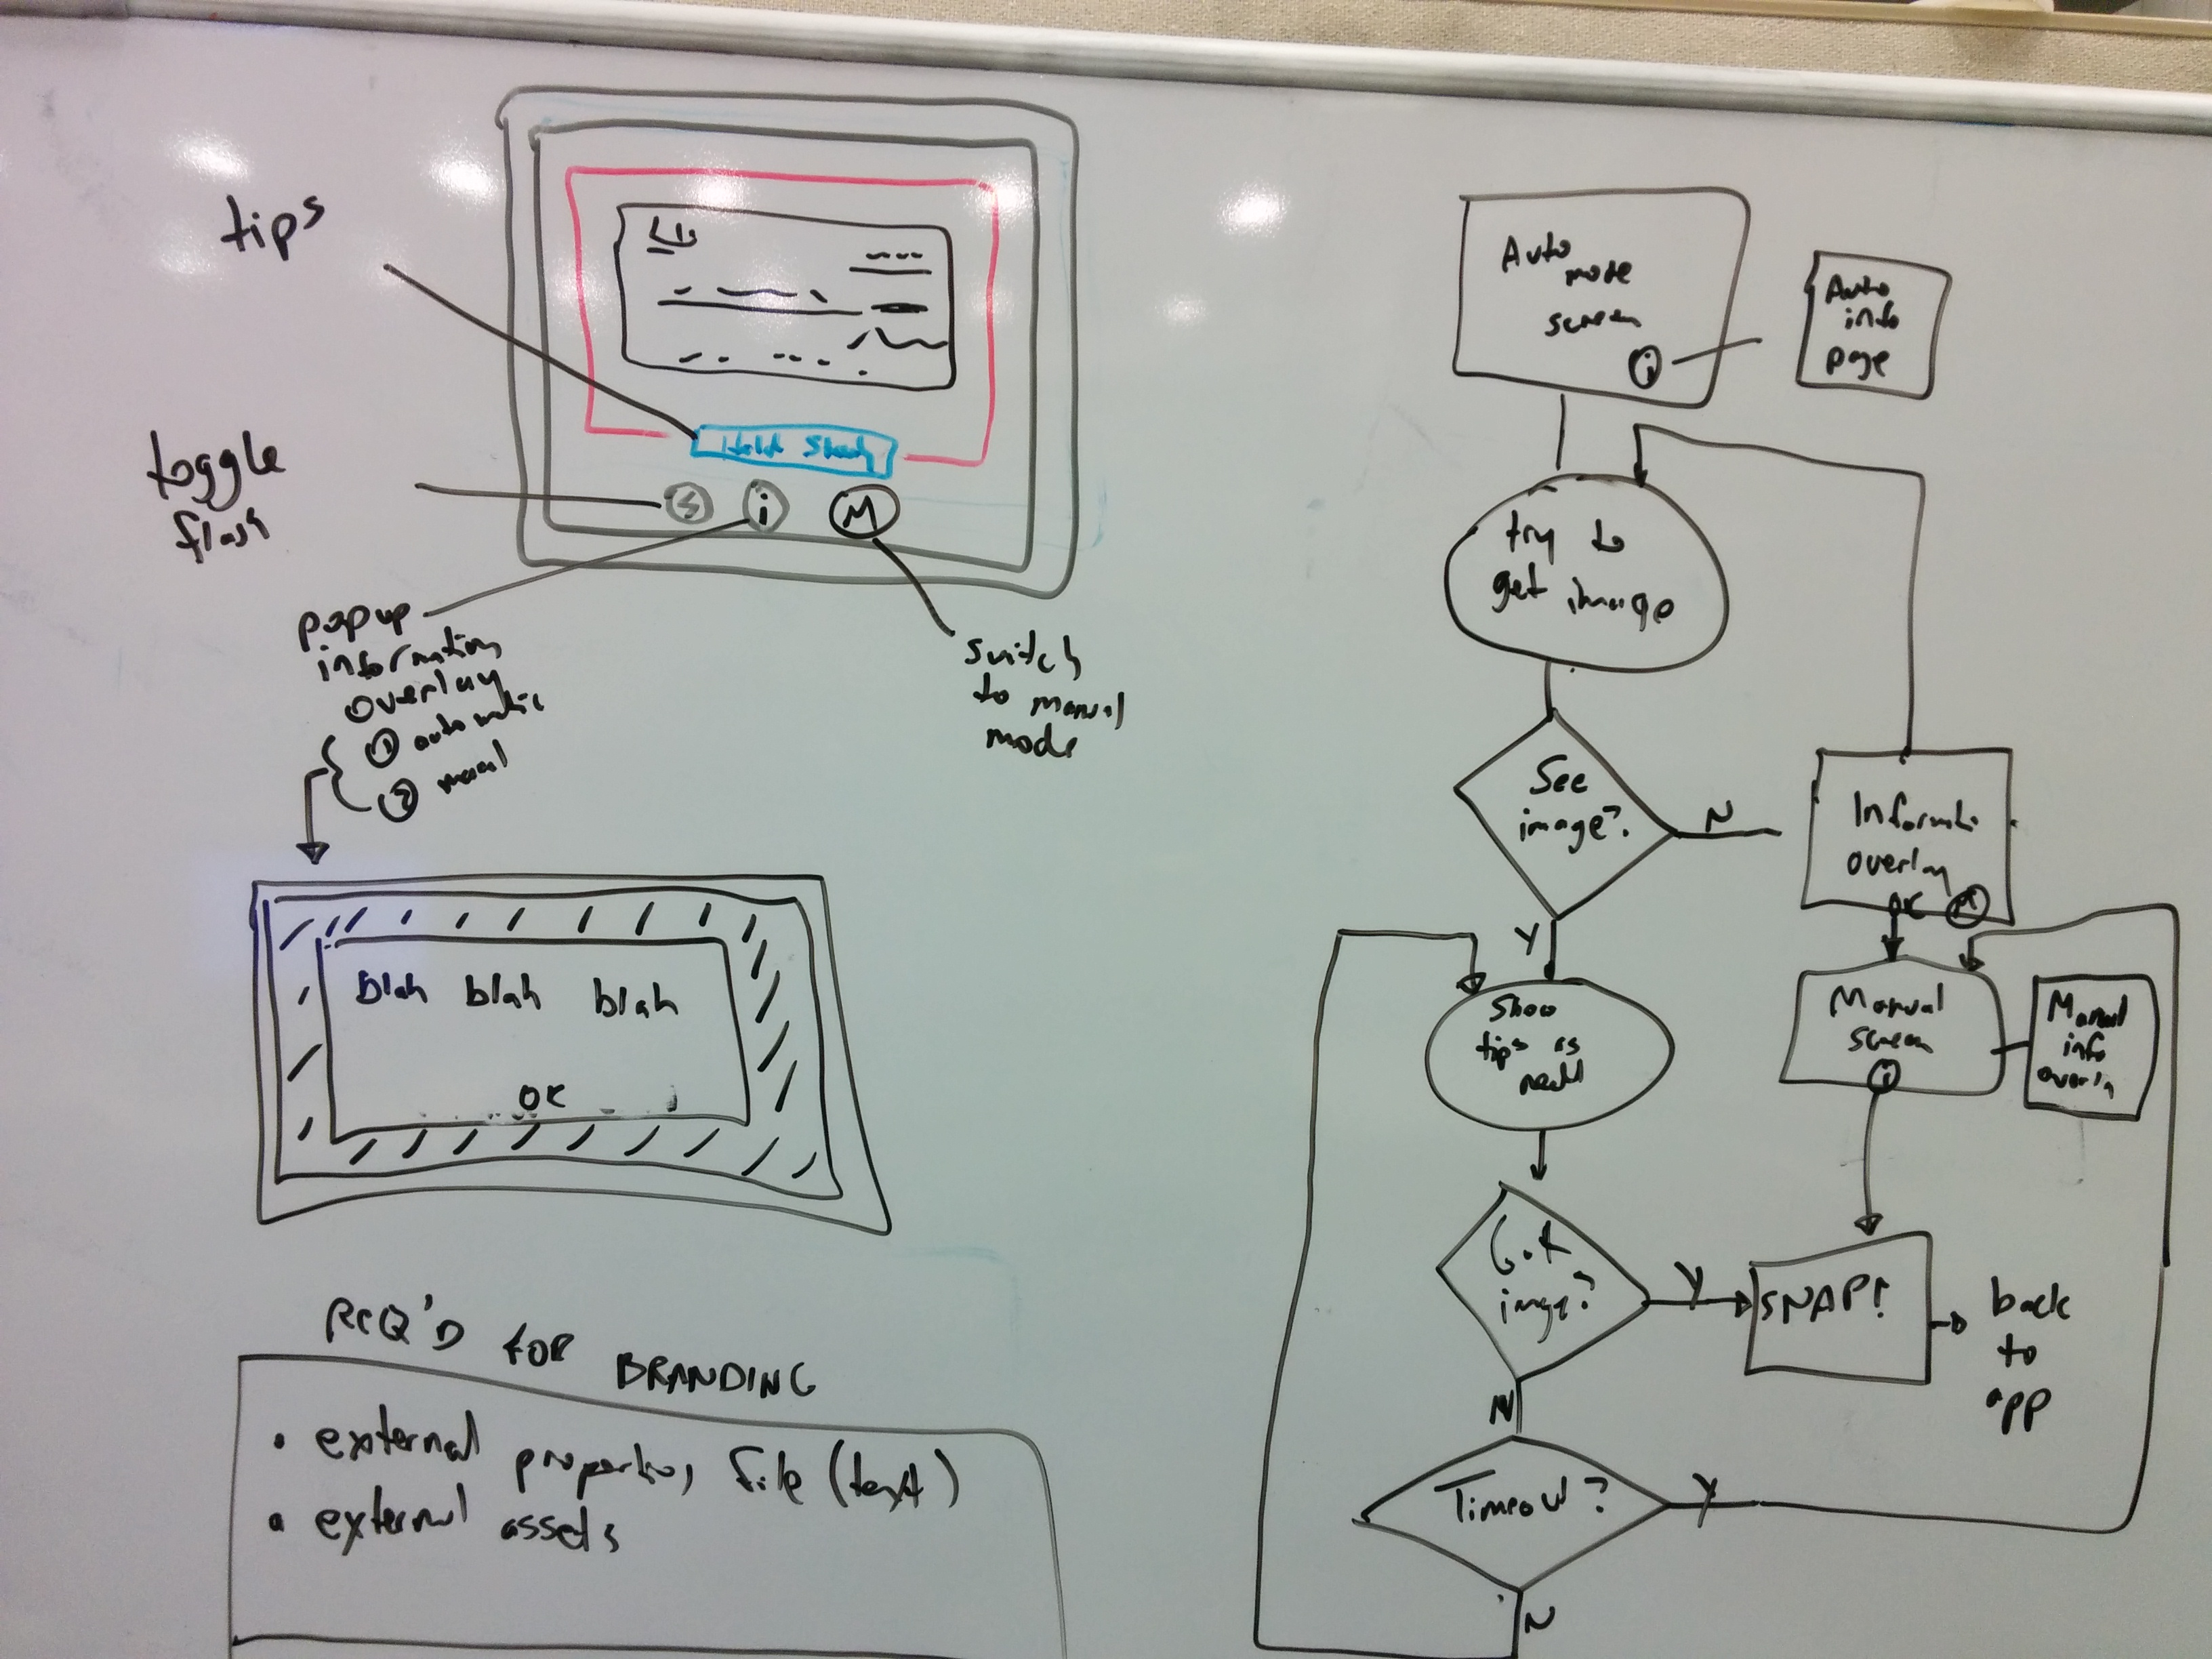 tips
Hold Steady
toggle
flash
i
M
popup
information
overlay
1 automatic
2 manual
switch
to manual
mode
blah blah blah
OK
REQ'D FOR BRANDING
• external properties file (text)
• external assets
Auto
mode
screen
i
Auto
info
page
try to
get image
See
image?
N
Y
overlay
OK M
Show
tips as
Manual
screen
i
Manual
info
Got
image?
Y
SNAP!
back
to
app
N
Timeout?
Y
N